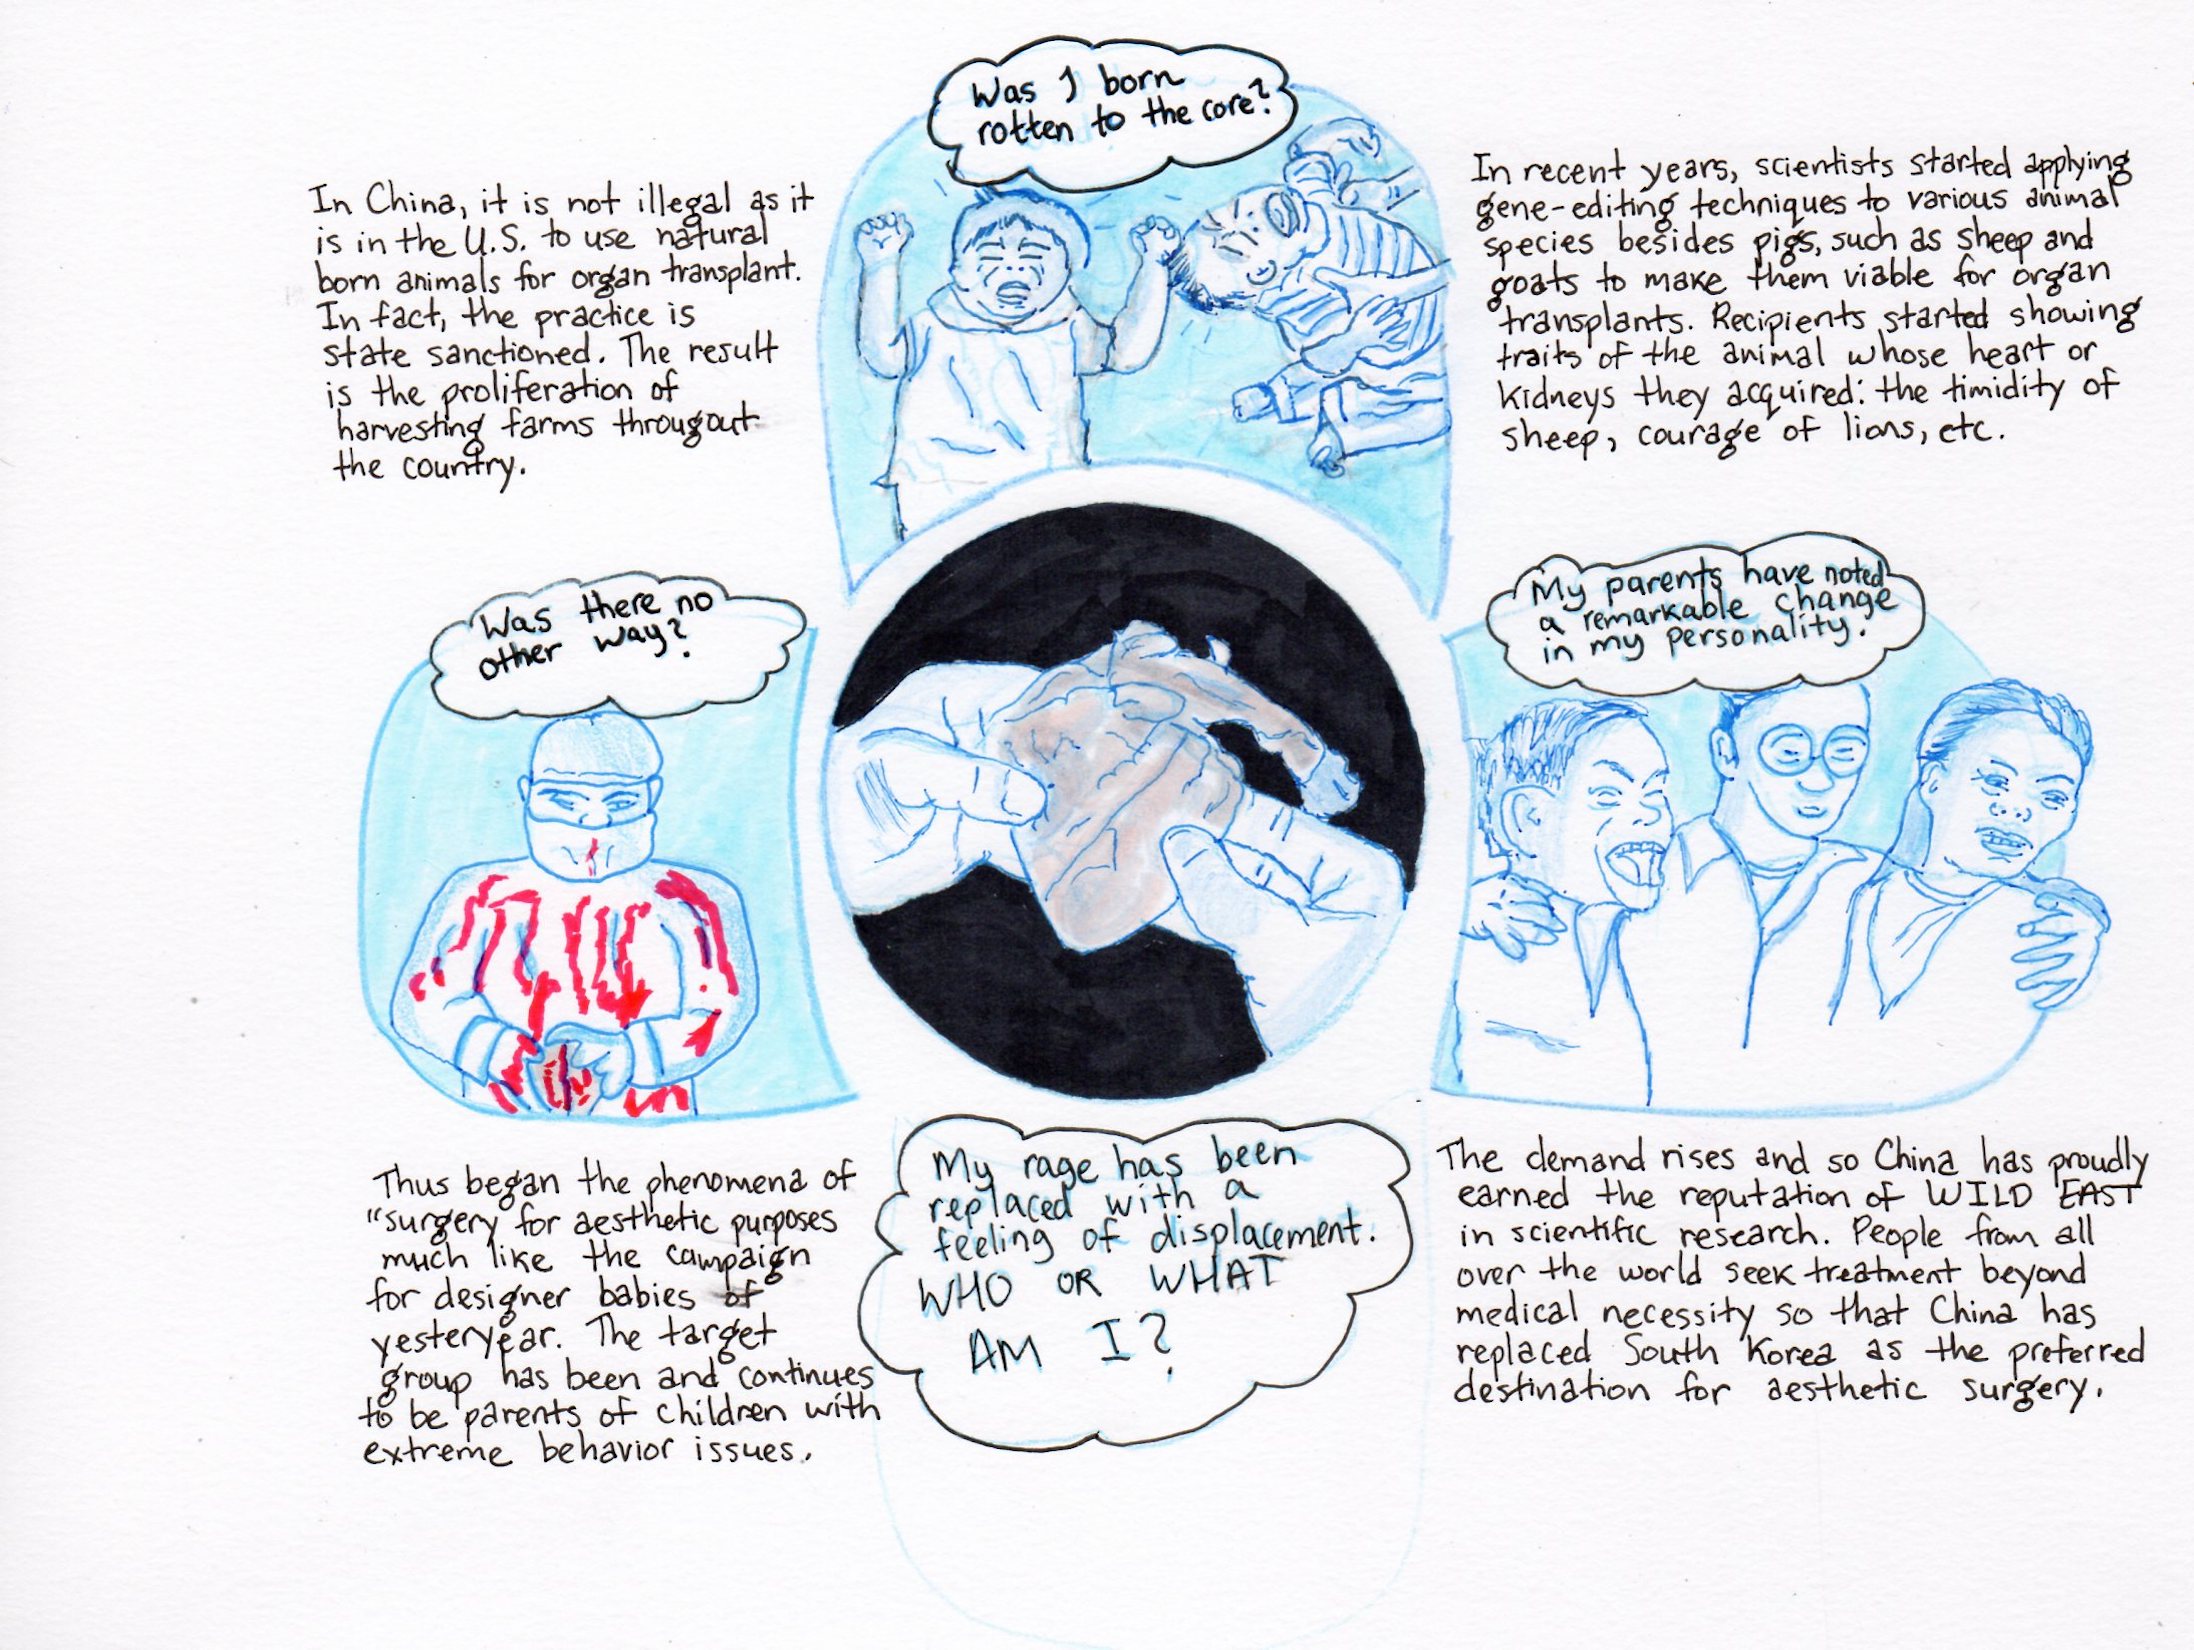 Was I born
rotten to the core?
In China, it is not illegal as it
is in the U.S. to use natural
born animals for organ transplant.
In fact, the practice is
state sanctioned. The result
is the proliferation of
harvesting farms througout
the country.
In recent years, scientists started applying
gene-editing techniques to various animal
species besides pigs, such as sheep and
goats to make them viable for organ
transplants. Recipients started showing
traits of the animal whose heart or
kidneys they acquired: the timidity of
sheep, courage of lions, etc.
Was there no
other way?
My parents have noted
a remarkable change
in my personality.
Thus began the phenomena of
"surgery for aesthetic purposes
much like the campaign
for designer babies of
yesteryear. The target
group has been and continues
to be parents of children with
extreme behavior issues.
My rage has been
replaced with a
feeling of displacement.
WHO OR WHAT
AM I?
The demand rises and so China has proudly
earned the reputation of WILD EAST
in scientific research. People from all
over the world seek treatment beyond
medical necessity so that China has
replaced South Korea as the preferred
destination for aesthetic surgery.